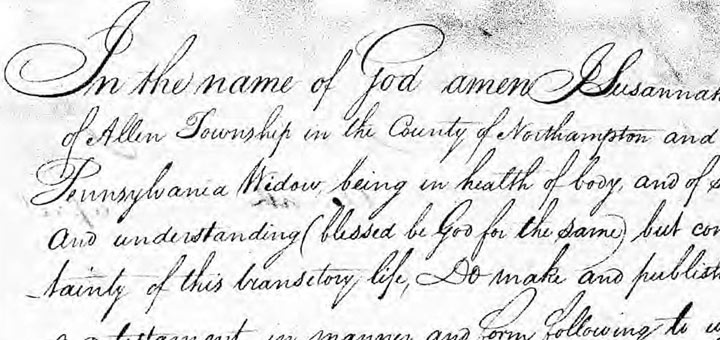 In the name of God amen I Susannah
of Allen Township in the County of Northampton and
Pennsylvania Widow, being in health of body, and of s
and understanding (blessed be God for the same) but con
tainty of this transetory life, Do make and publish
testament in manner and form following to